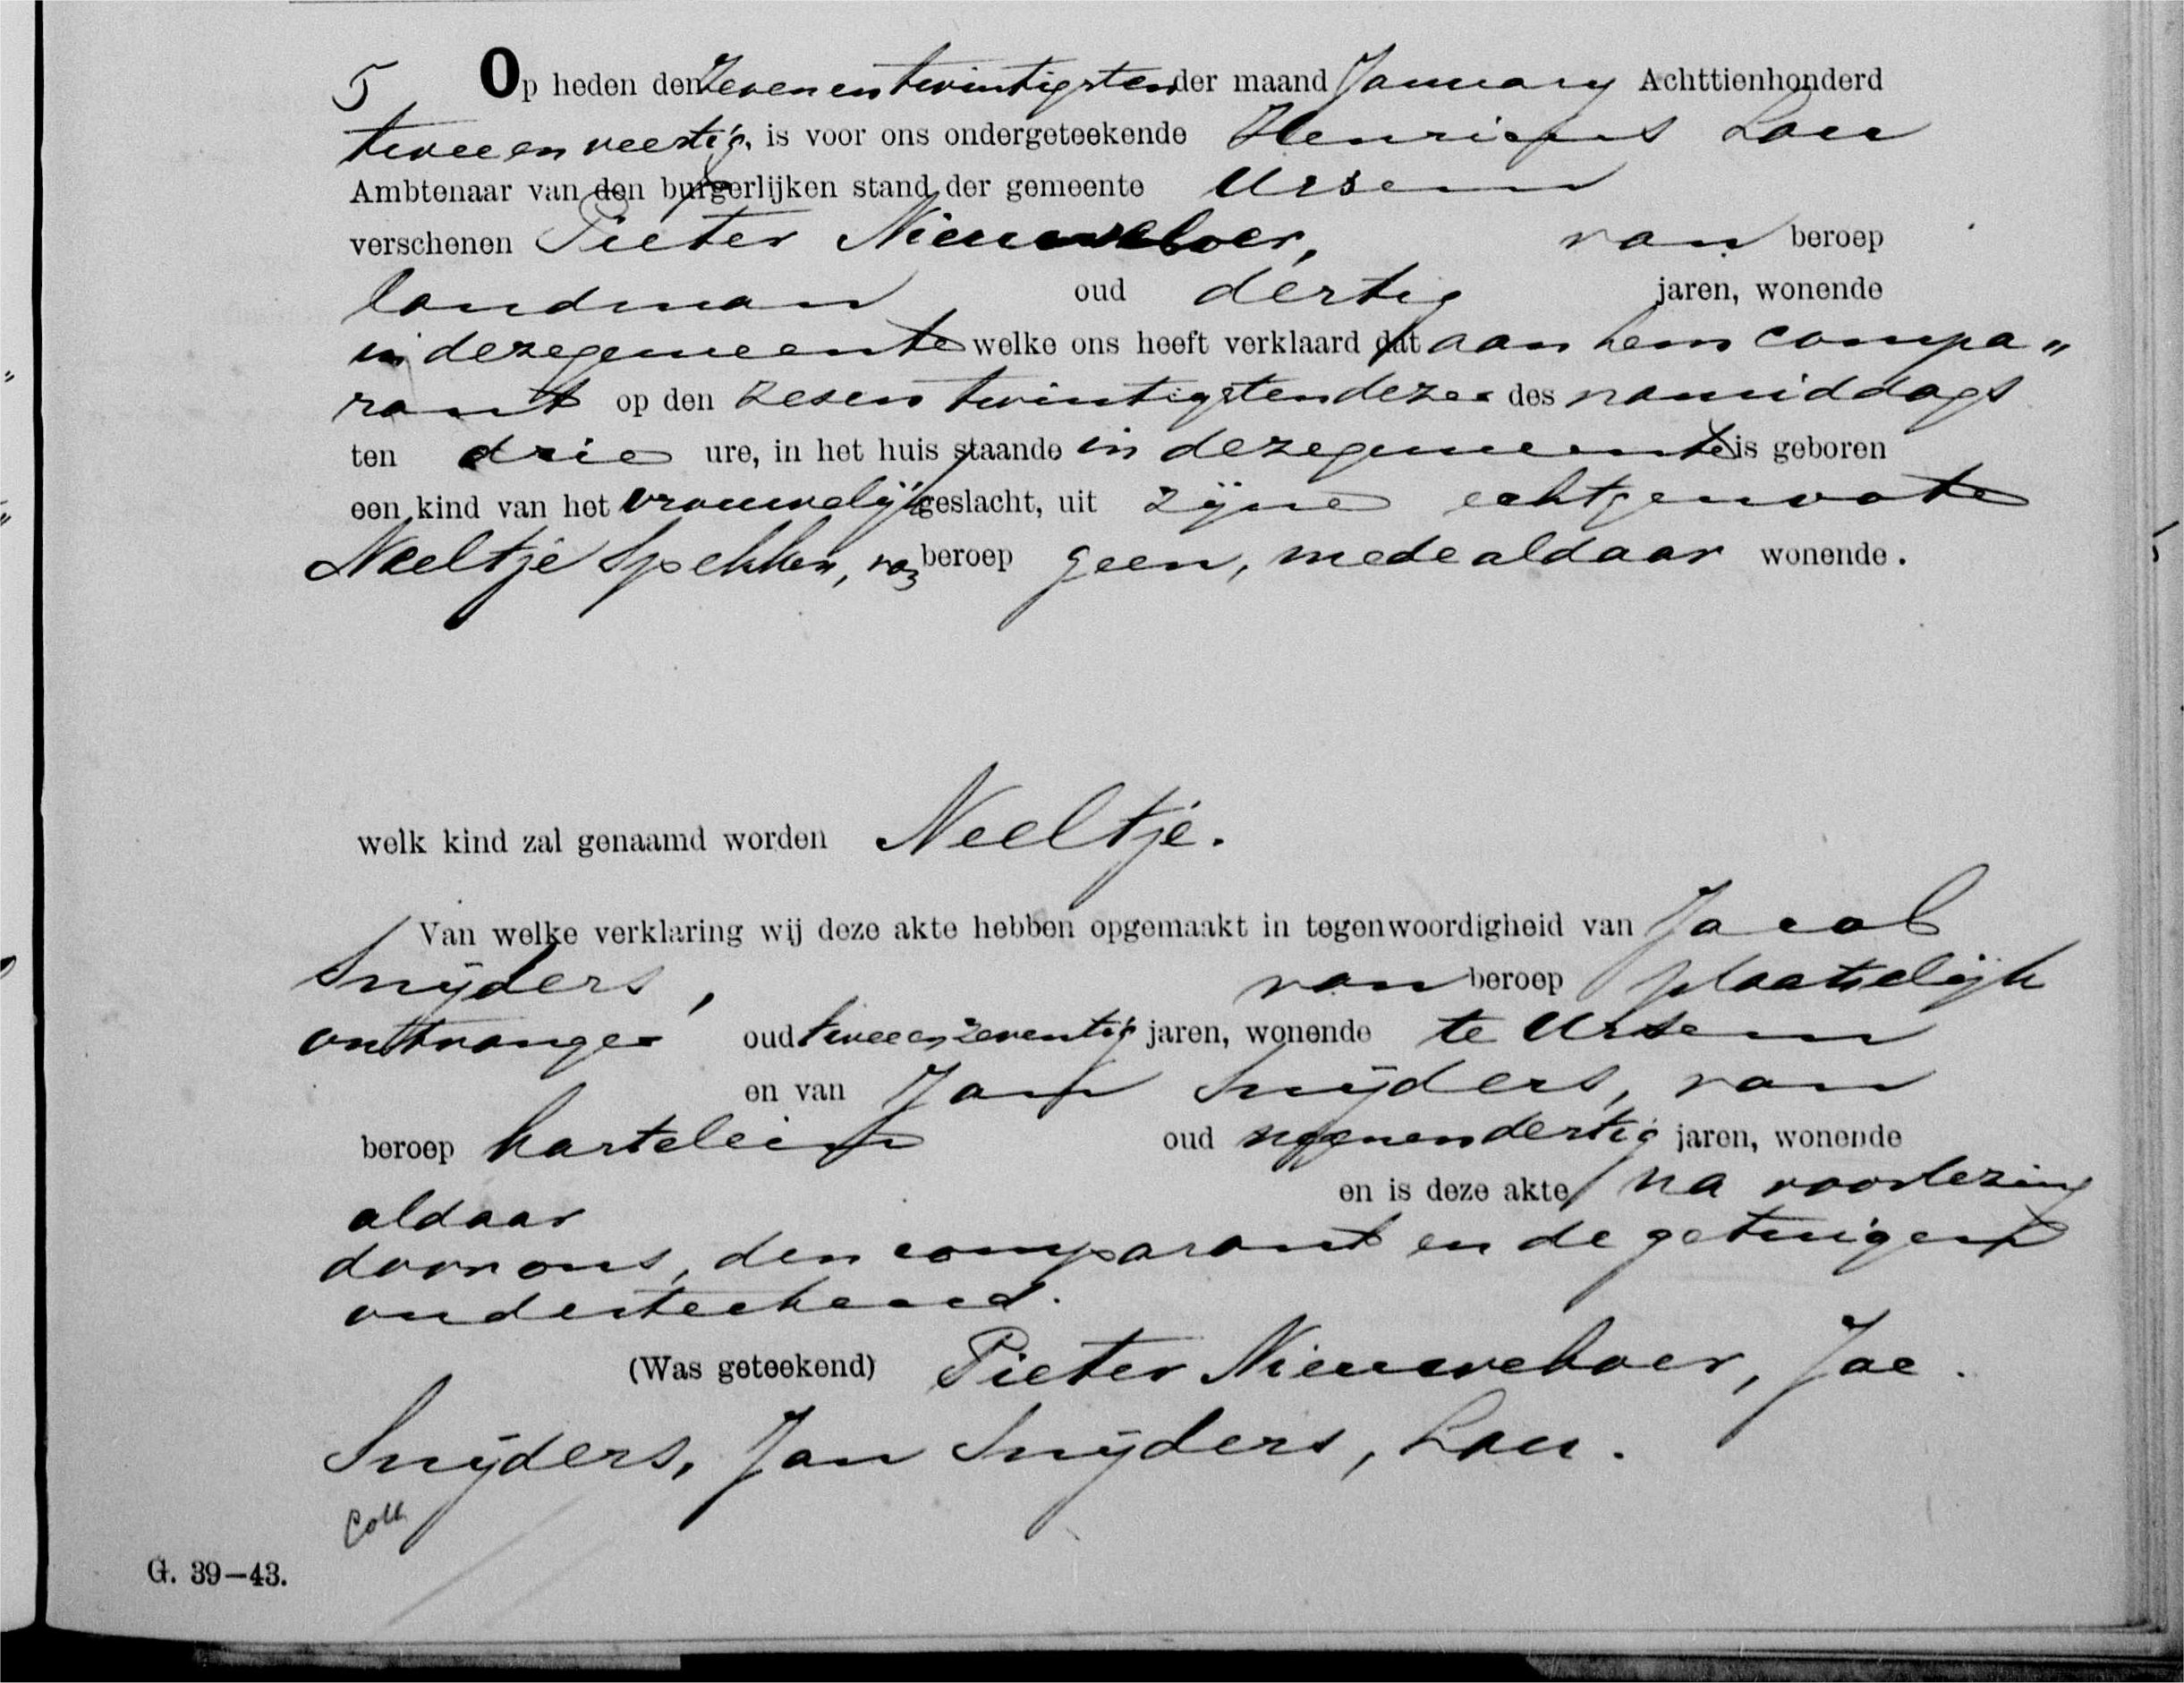 5 Op heden den Zevenentwintigsten der maand January Achttienhonderd
tweeenveertig, is voor ons ondergeteekende Henricus Lou
Ambtenaar van den burgerlijken stand der gemeente Ursem
verschenen Pieter Nieuweboer, van beroep
landman oud dertig jaren, wonende
in dezegemeente welke ons heeft verklaard dat aan hem compa„
rant op den zesentwintigsten dezer des namiddags
ten drie ure, in het huis staande in dezegemeente is geboren
een kind van het vrouwelijk geslacht, uit zijne echtgenoote
Neeltje Spekken, van beroep geen, mede aldaar wonende.
welk kind zal genaamd worden Neeltje.
Van welke verklaring wij deze akte hebben opgemaakt in tegenwoordigheid van Jacob
Snijders, van beroep plaatselijk
ontvanger oud tweeenzeventig jaren, wonende te Ursem
en van Jan Snijders, van
beroep kastelein oud negenendertig jaren, wonende
aldaar en is deze akte na voorlezing
door ons, den comparant en de getuigen
onderteekend.
(Was geteekend) Pieter Nieuweboer, Jac.
Snijders, Jan Snijders, Lou.
Coll
G. 39—43.